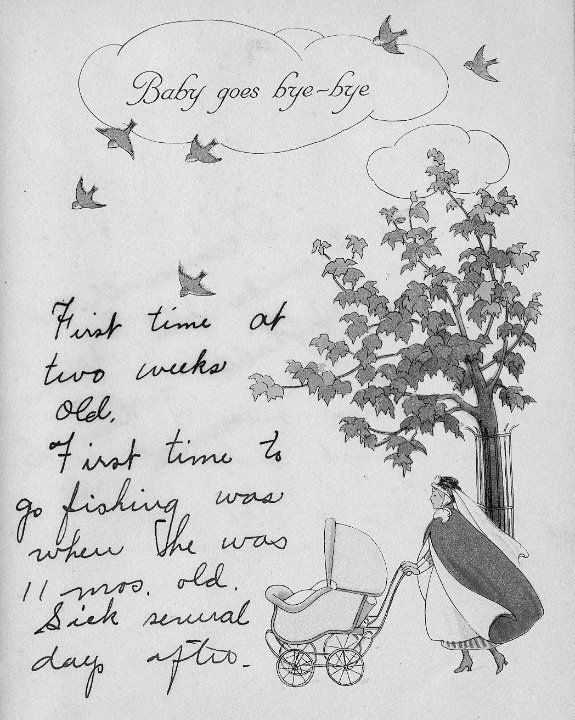 Baby goes bye-bye
First time at
two weeks
old.
First time to
go fishing was
when she was
11 mos. old.
Sick several
days after.